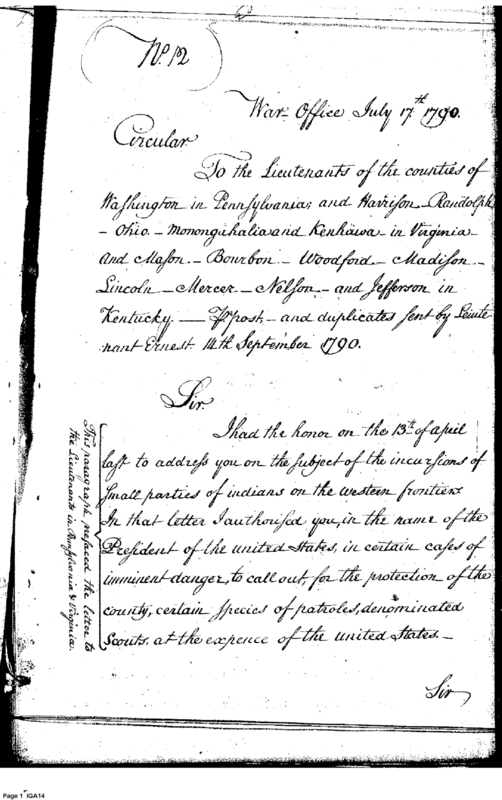 No. 12
War Office July 17th 1790.
Circular
To the Lieutenants of the counties of
Washington in Pennsylvania; and Harrison - Randolph
- Ohio - Monongihalia and Kenhawa - in Virginia
and Mason - Bourbon - Woodford - Madison -
Lincoln - Mercer - Nelson - and Jefferson in
Kentucky - post, - and duplicates sent by Lieute
nant Ernest 14th September 1790.
Sir.
I had the honor on the 13th of april
last to address you on the subject of the incursions of
small parties of indians on the western frontiers.
In that letter I authorised you, in the name of the
President of the united States, in certain cases of
imminent danger, to call out, for the protection of the
county, certain species of patroles, denominated
Scouts, at the expence of the united States. -
This paragraph prefaced the letter to
the Lieutenants in Pennsylvania & Virginia.
Sir
Page 1 IGA14